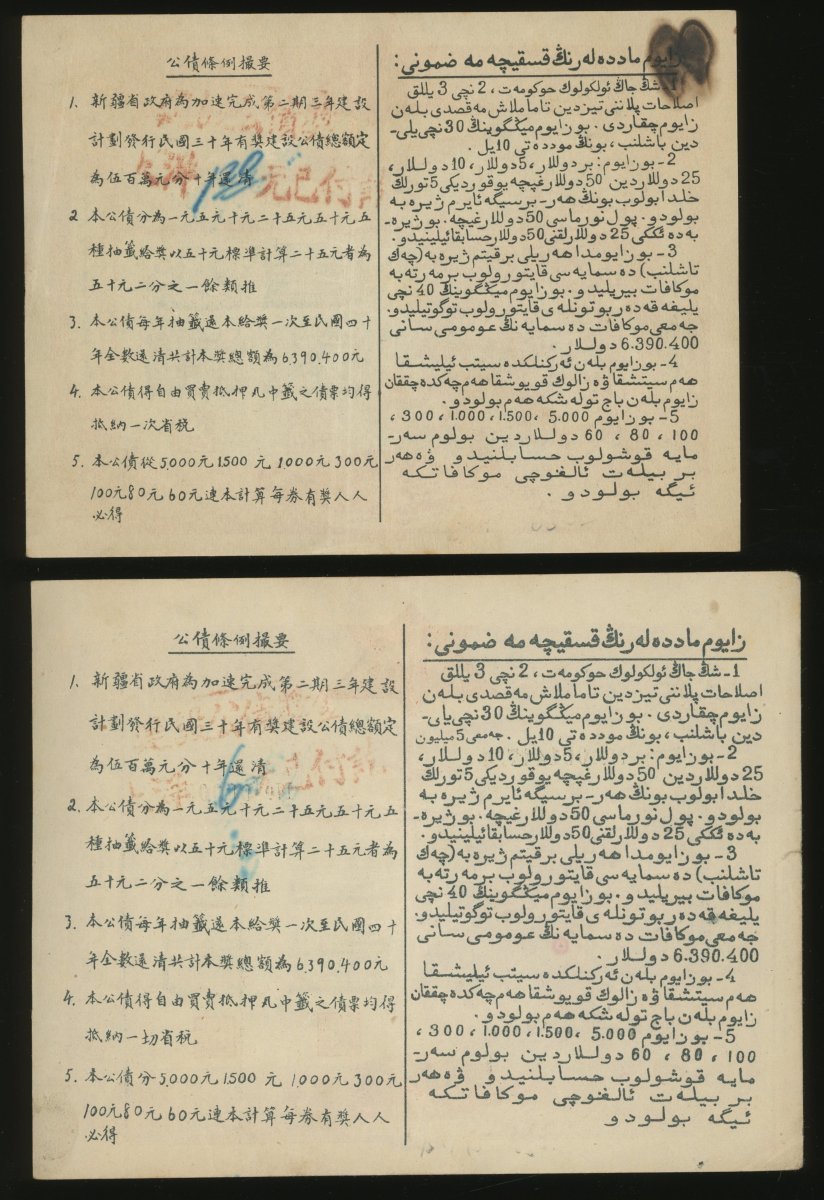 公債條例撮要
1. 新疆省政府為加速完成第二期三年建設
計劃發行民國三十年有獎建設公債總額定
為伍百萬元分十年還清
2 本公債分為一元五元十元二十五元五十元五
種抽籤給獎以五十元標準計算二十五元者為
五十元二分之一餘類推
3. 本公債每年抽籤還本給獎一次至民國四十
年全數還清共計本獎總額為6,390,400元
4. 本公債得自由買賣抵押凡中籤之債票均得
抵納一次省稅
5. 本公債從5000元1500元1000元300元
100元80元60元連本計算每券有獎人人
必得
زايوم ماددە لەرنىڭ قسقيچە مە ضمونى:
1- شڭ جاڭ ئولكولوك حوكومەت، 2 نچى 3 يللق
اصلاحات پلاننى تيزدين تاماملاش مەقصدى بلەن
زايوم چقاردى. بو زايوم مڭگوينىڭ 30 نچى يلى-
دين باشلنب، بونڭ موددە تى 10 يل.
2- بو زايوم: بر دوللار، 5 دوللار، 10 دوللار،
25 دوللاردين 50 دوللارغيچە يوقورديكى 5 تورلك
خلدا بولوب بونڭ هەر- برسيگە ئايرم ژيرە بە
بولودو. پول نورماسى 50 دوللارغيچە. بو ژيرە-
بە دە ئككى 25 دوللارلقنى 50 دوللار حسابقا ئيلينيدو.
3- بو زايومدا هەر يلى بر قيتم ژيرە بە (چەك
تاشلنب) دە سمايە سى قايتورولوب بر مەرتە بە
موكافات بيريليدو. بو زايوم مڭگوينىڭ 40 نچى
يليغە قە دەر بوتونلە ى قايتورولوب توگوتيليدو.
جە معى موكافات دە سمايە نڭ عومومى سانى
6.390.400 دوللار.
4- بو زايوم بلەن ئەركنلكدە سيتب ئيليشقا
هەم سيتشقا ۋە زالوك قويوشقا هەم چەكدە چققان
زايوم بلەن باج تولە شكە هەم بولودو.
5- بو زايوم 5.000، 1.500، 1.000، 300،
100، 80، 60 دوللاردين بولوم سەر-
مايە قوشولوب حسابلنيدو ۋە هەر
بر بيلەت ئالغوچى موكافاتكە
ئيگە بولودو.
公債條例撮要
1. 新疆省政府為加速完成第二期三年建設
計劃發行民國三十年有獎建設公債總額定
為伍百萬元分十年還清
2. 本公債分為一元五元十元二十五元五十元五
種抽籤給獎以五十元標準計算二十五元者為
五十元二分之一餘類推
3. 本公債每年抽籤還本給獎一次至民國四十
年全數還清共計本獎總額為6,390,400元
4. 本公債得自由買賣抵押凡中籤之債票均得
抵納一切省稅
5. 本公債分5,000元1500元1,000元300元
100元80元60元連本計算每券有獎人人
必得
زايوم ماددە لەرنىڭ قسقيچە مە ضمونى:
1- شڭ جاڭ ئولكولوك حوكومەت، 2 نچى 3 يللق
اصلاحات پلاننى تيزدين تاماملاش مەقصدى بلەن
زايوم چقاردى. بو زايوم مڭگوينىڭ 30 نچى يلى-
دين باشلنب، بونڭ موددە تى 10 يل. جەمعى 5 ميليون
2- بو زايوم: بر دوللار، 5 دوللار، 10 دوللار،
25 دوللاردين 50 دوللارغيچە يوقورديكى 5 تورلك
خلدا بولوب بونڭ هەر- برسيگە ئايرم ژيرە بە
بولودو. پول نورماسى 50 دوللارغيچە. بو ژيرە-
بە دە ئككى 25 دوللارلقنى 50 دوللار حسابقا ئيلينيدو.
3- بو زايومدا هەر يلى بر قيتم ژيرە بە (چەك
تاشلنب) دە سمايە سى قايتورولوب بر مەرتە بە
موكافات بيريليدو. بو زايوم مڭگوينىڭ 40 نچى
يليغە قە دەر بوتونلە ى قايتورولوب توگوتيليدو.
جە معى موكافات دە سمايە نڭ عومومى سانى
6.390.400 دوللار.
4- بو زايوم بلەن ئەركنلكدە سيتب ئيليشقا
هەم سيتشقا ۋە زالوك قويوشقا هەم چەكدە چققان
زايوم بلەن باج تولە شكە هەم بولودو.
5- بو زايوم 5.000، 1.500، 1.000، 300،
100، 80، 60 دوللاردين بولوم سەر-
مايە قوشولوب حسابلنيدو ۋە هەر
بر بيلەت ئالغوچى موكافاتكە
ئيگە بولودو